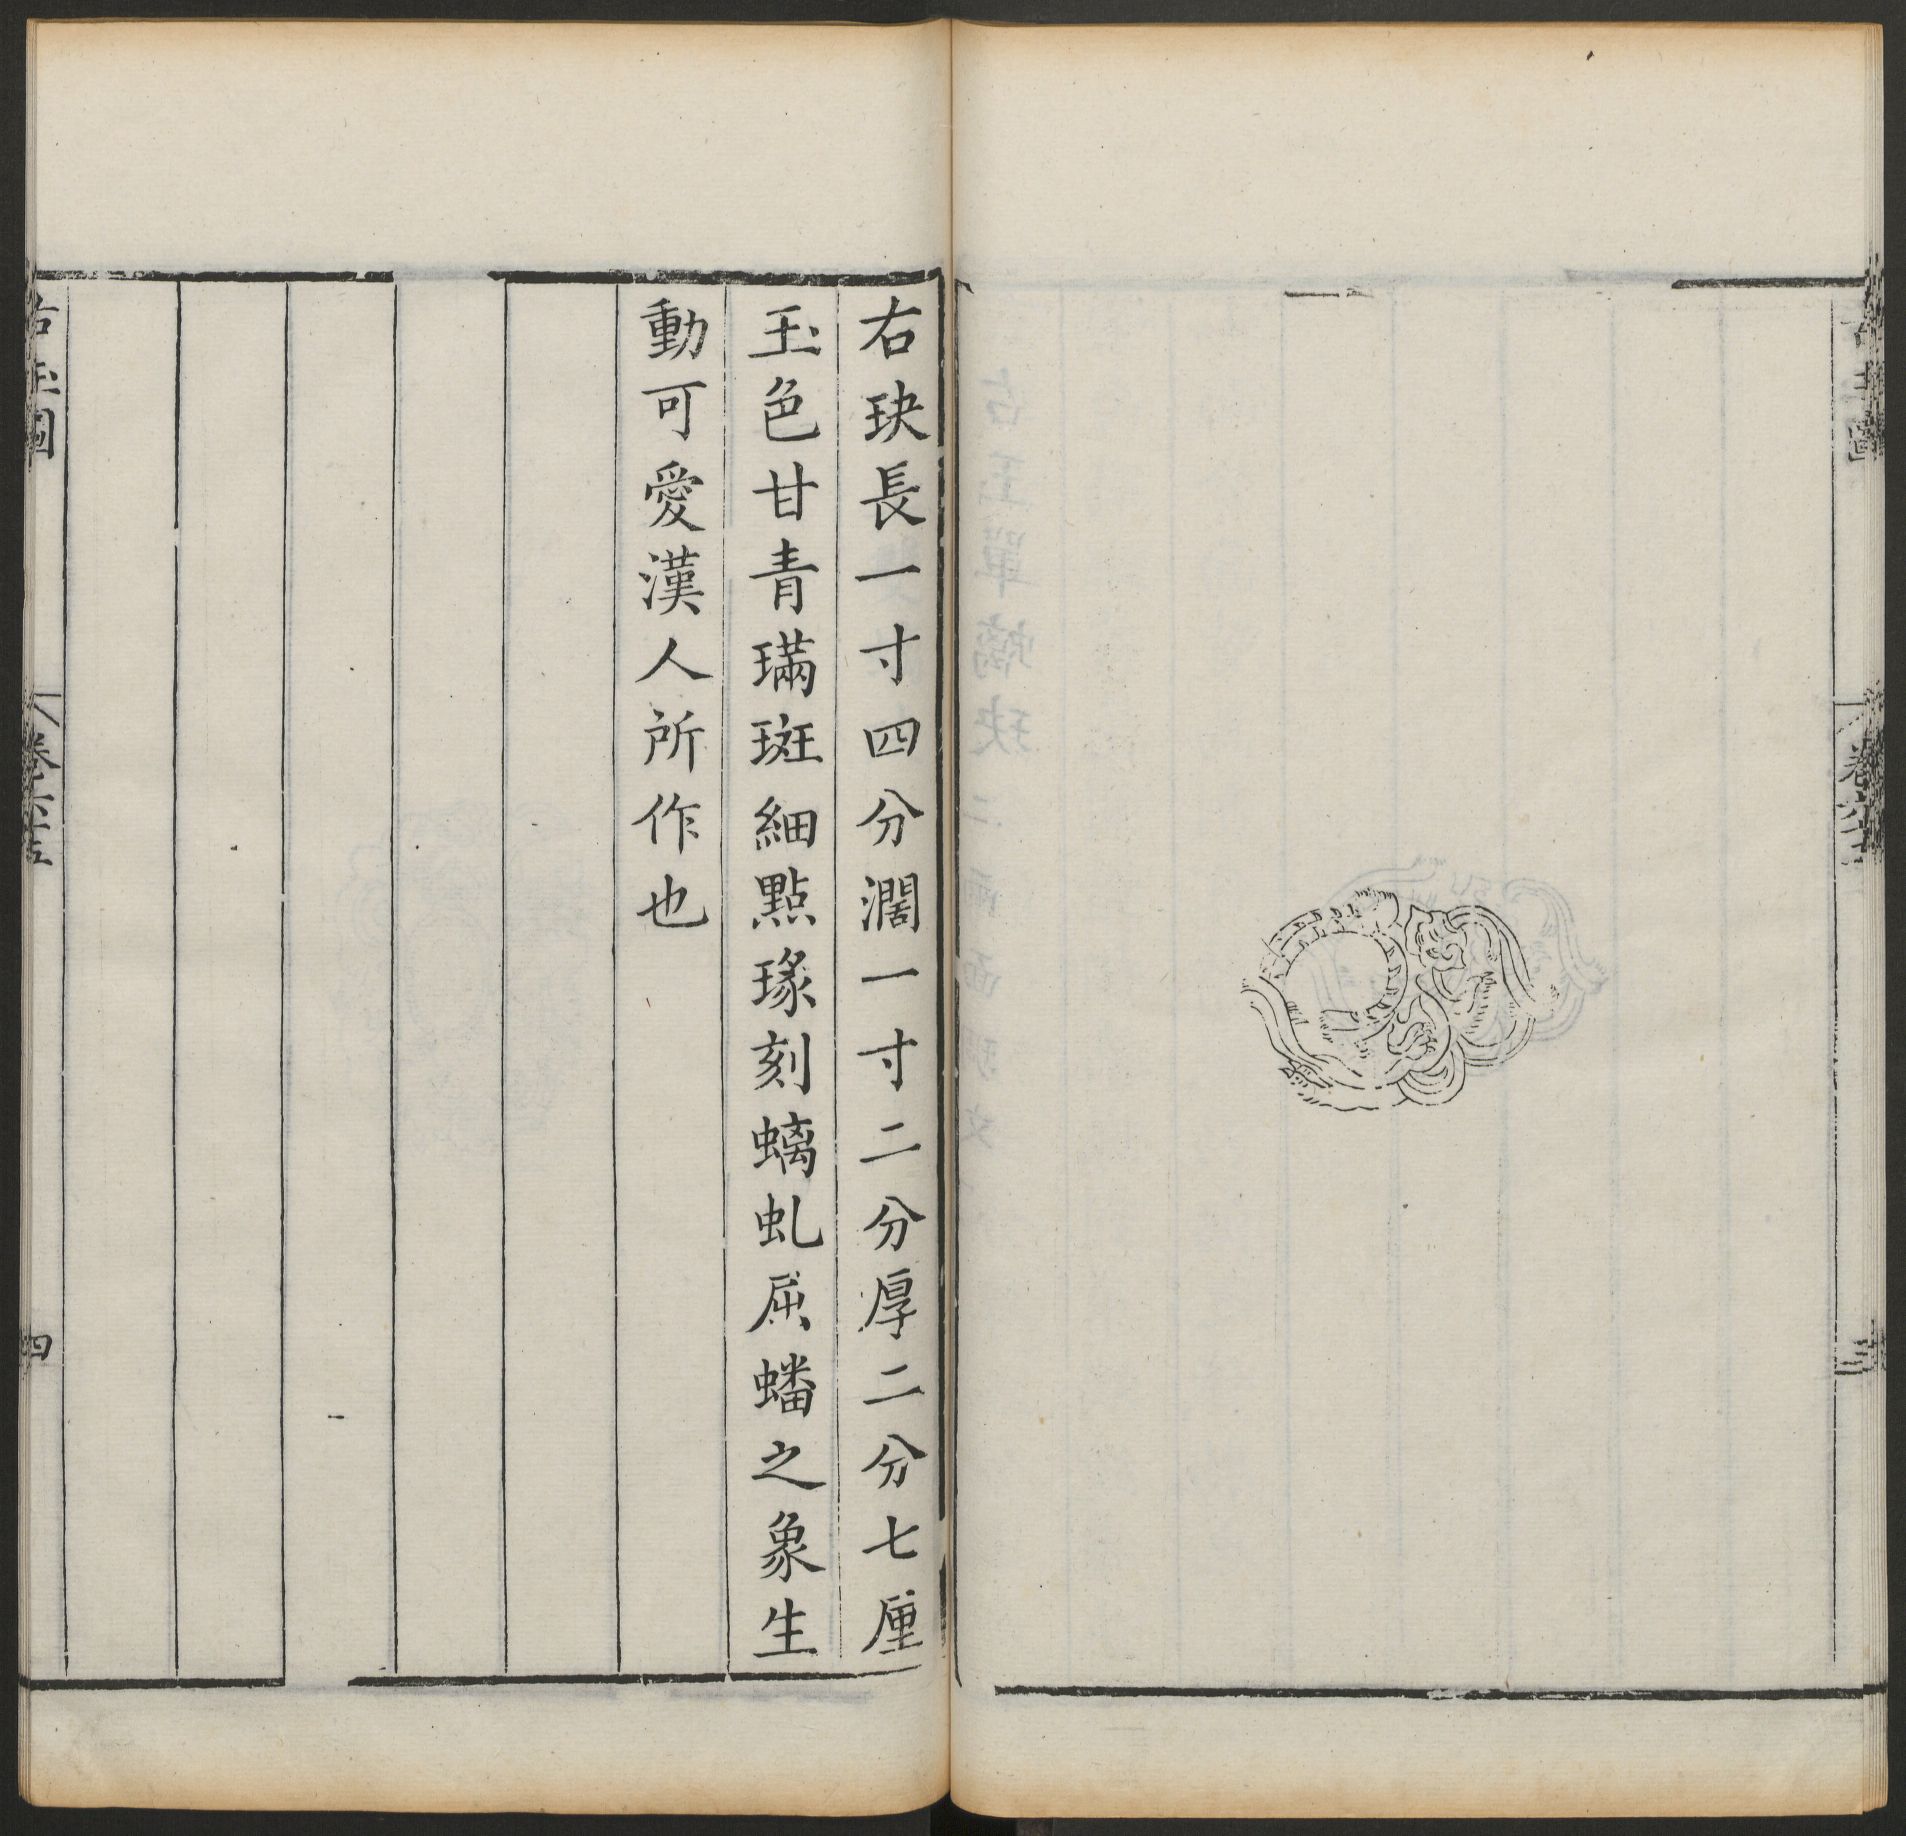 右玦長一寸四分濶一寸二分厚二分七厘
玉色甘青璊斑細點瑑刻螭虬屈蟠之象生
動可愛漢人所作也
古玉圖
卷六十五
四